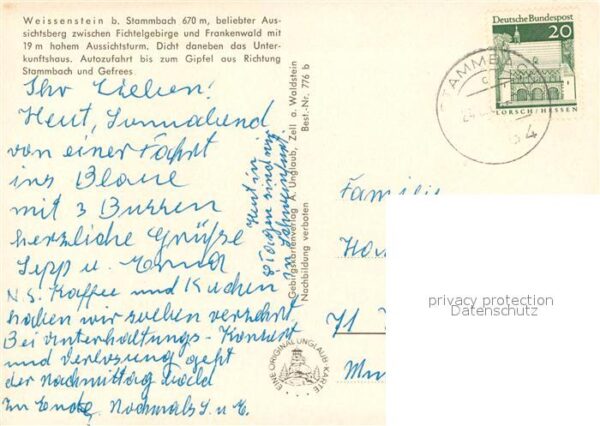 Weissenstein b. Stammbach 670 m, beliebter Aus-
sichtsberg zwischen Fichtelgebirge und Frankenwald mit
19 m hohem Aussichtsturm. Dicht daneben das Unter-
kunftshaus. Autozufahrt bis zum Gipfel aus Richtung
Stammbach und Gefrees
Ihr Lieben!
Heut, Sonnabend
von einer Fahrt
ins Blaue
mit 3 Bussen
herzliche Grüße
Sepp u. Erna
N.S. Kaffee und Kuchen
haben wir soeben verzehrt
Bei Unterhaltungs-Konzert
und Verlosung geht
der Nachmittag bald
zu Ende. Nochmals S. u. E.
Heut in
8 Tagen sind wir
in
Gebirgskartenverlag A. Unglaub, Zell a. Waldstein
Nachbildung verboten
Best.-Nr. 776 b
EINE ORIGINAL UNGLAUB-KARTE
Deutsche Bundespost
20
LORSCH/HESSEN
STAMMBACH
Familie
71
privacy protection
Datenschutz